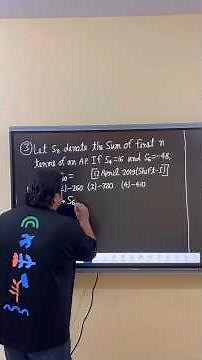 ③ Let Sn denote the Sum of first n
terms of an A.P. If S4=16 and S6=-48,
S10= [12 April 2019(Shift-I)]
-260 (2)-320 (4)-410
S6